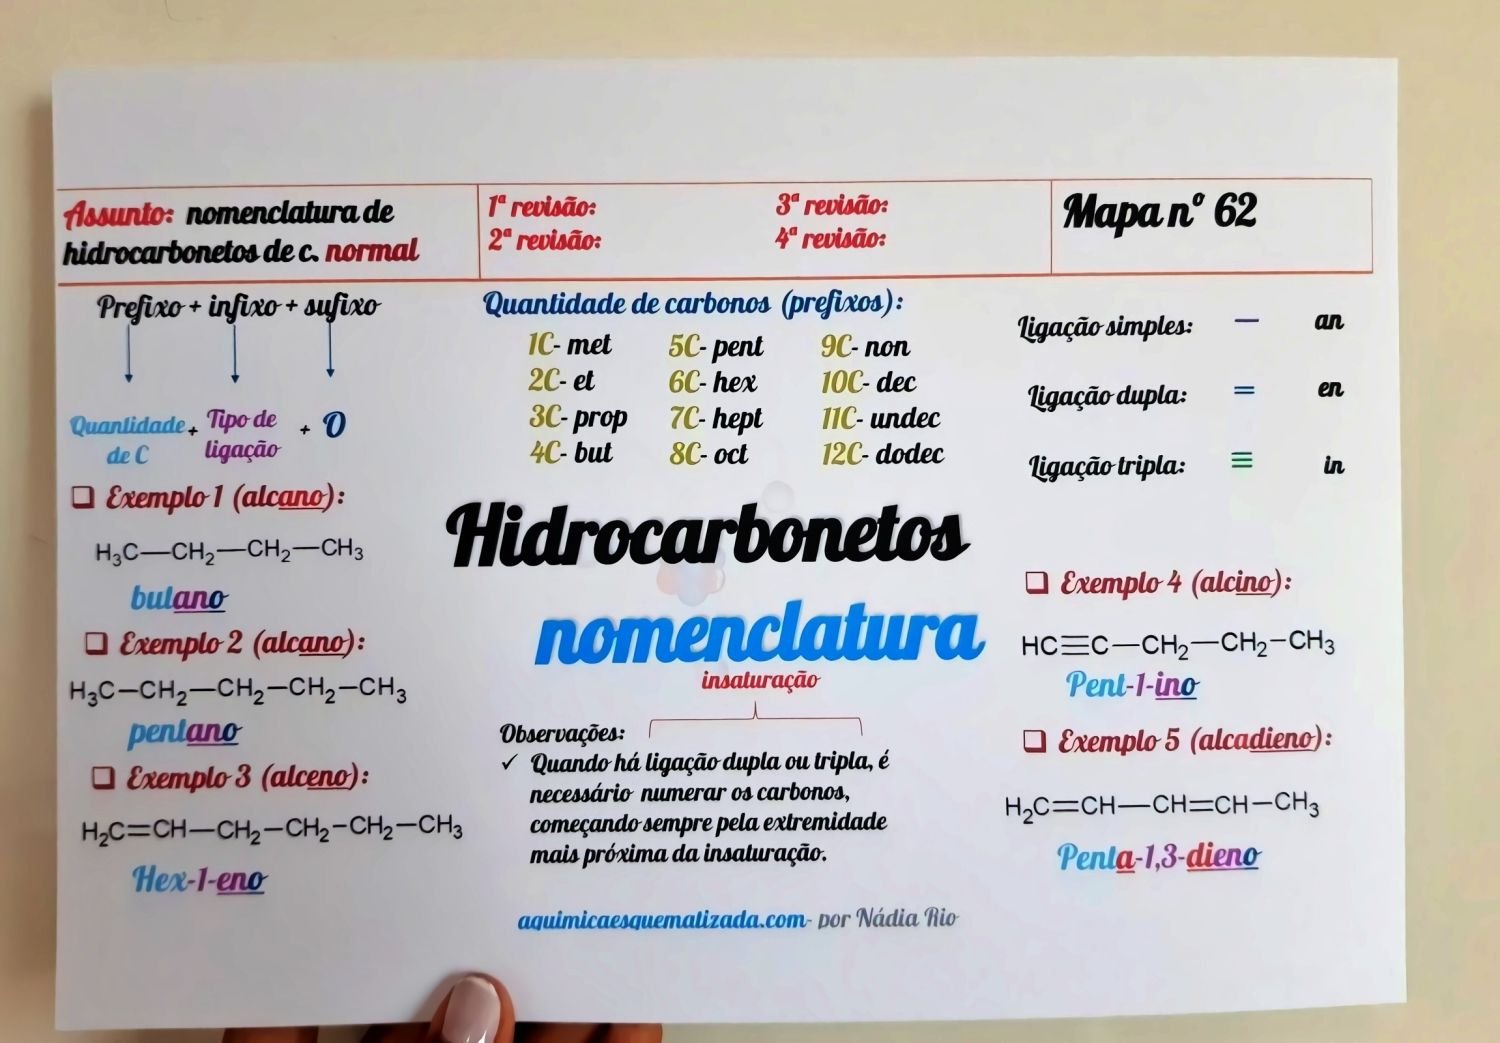 Assunto: nomenclatura de
hidrocarbonetos de c. normal
1ª revisão:
2ª revisão:
3ª revisão:
4ª revisão:
Mapa nº 62
Prefixo + infixo + sufixo
Quantidade de C + Tipo de ligação + O
Exemplo 1 (alcano):
H₃C—CH₂—CH₂—CH₃
butano
Exemplo 2 (alcano):
H₃C—CH₂—CH₂—CH₂—CH₃
pentano
Exemplo 3 (alceno):
H₂C=CH—CH₂—CH₂—CH₂—CH₃
Hex-1-eno
Quantidade de carbonos (prefixos):
1C- met 5C- pent 9C- non
2C- et 6C- hex 10C- dec
3C- prop 7C- hept 11C- undec
4C- but 8C- oct 12C- dodec
Hidrocarbonetos
nomenclatura
insaturação
Observações:
✓ Quando há ligação dupla ou tripla, é
necessário numerar os carbonos,
começando sempre pela extremidade
mais próxima da insaturação.
aquimicaesquematizada.com- por Nádia Rio
Ligação simples: — an
Ligação dupla: = en
Ligação tripla: ≡ in
Exemplo 4 (alcino):
HC≡C—CH₂—CH₂—CH₃
Pent-1-ino
Exemplo 5 (alcadieno):
H₂C=CH—CH=CH—CH₃
Penta-1,3-dieno